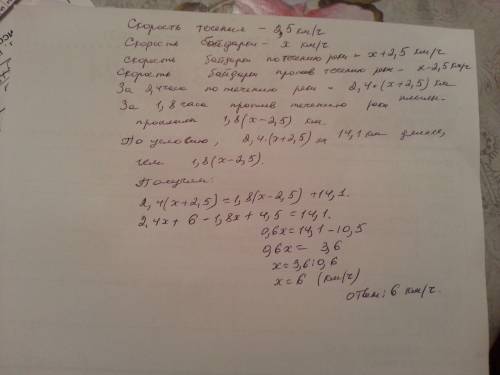 Скорость течения - 2,5 км/ч
Скорость байдарки - x км/ч
Скорость байдарки по течению реки - x+2,5 км/ч
Скорость байдарки против течения реки - x-2,5 км/ч
За 2,4 часа по течению реки - 2,4·(x+2,5) км
За 1,8 часа против течению реки
проплыли 1,8(x-2,5) км.
По условию, 2,4·(x+2,5) на 14,1 км
чем 1,8(x-2,5).
Получим:
2,4(x+2,5)=1,8(x-2,5)+14,1.
2,4x+6-1,8x+4,5=14,1.
0,6x=14,1-10,5
0,6x= 3,6
x=3,6:0,6
x=6 (км/ч)
Ответ: 6 км/ч.